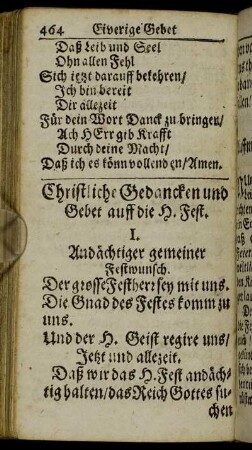 464 Eiverige Gebet
Daß Leib und Seel
Ohn allen Fehl
Sich jetzt darauff bekehren/
Ich bin bereit
Dir allezeit
Für dein Wort Danck zu bringen/
Ach HErr gib Krafft
Durch deine Macht/
Daß ich es könn vollenden/Amen.
Christliche Gedancken und
Gebet auff die H. Fest.
I.
Andächtiger gemeiner
Festwunsch.
Der grosse Festherr sey mit uns.
Die Gnad des Festes komm zu
uns.
Und der H. Geist regire uns/
Jetzt und allezeit.
Daß wir das H. Fest andäch-
tig halten/das Reich Gottes su-
chen